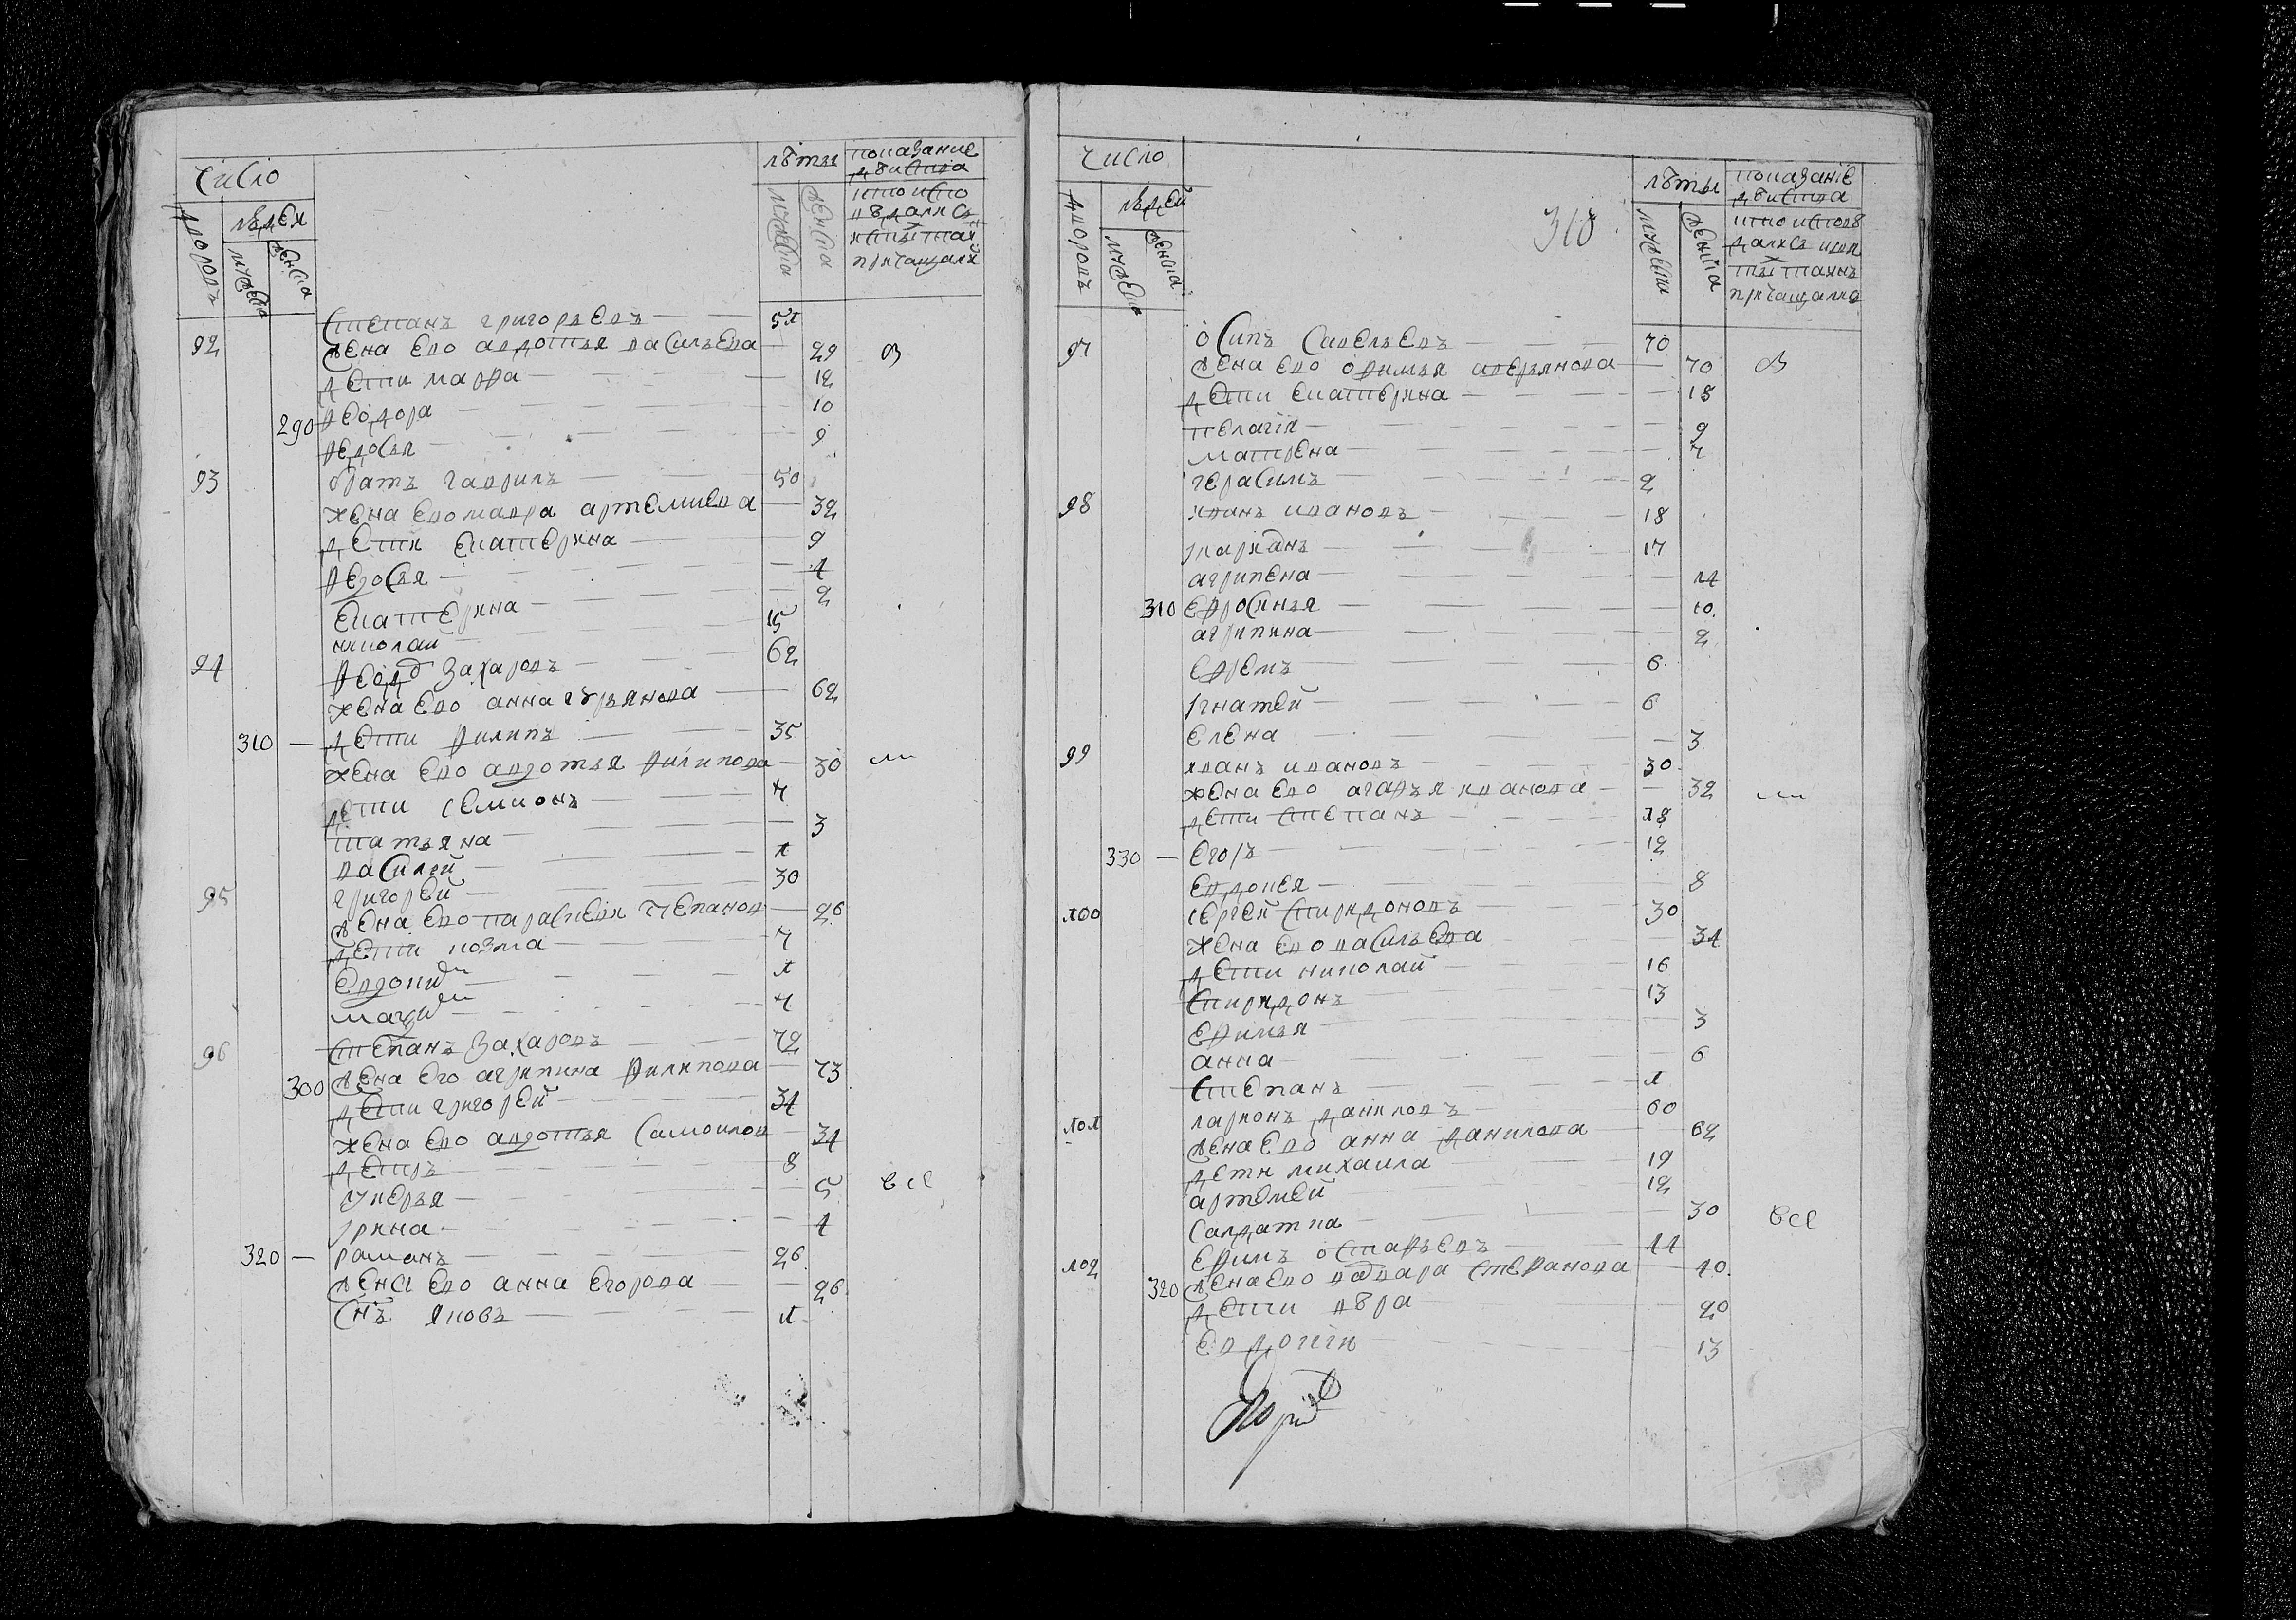 Число
лѣты
показание
дѣйства
дворовъ
людей
мужеска
женска
мужеска
женска
кто исповѣдался
и святыхъ таинъ
причащался
Степанъ григорьевъ 51
92 жена ево авдотья васильева 29
дети марфа 12
290 феодора 10
федосья 9
93 братъ гаврилъ 50
жена ево мавра артемиева 32
дети екатерина 9
федосья 4
екатерина 2
николай 15
94 феодоръ захаровъ 62
жена ево анна гурьянова 62
310 дети филипъ 35
жена ево авдотья филипова 30
дети семионъ 7
татьяна 3
василей 1
95 григорей 30
жена ево параскевя степанов 26
дети козма 7
евдоким 1
7
96 степанъ захаровъ 72
300 жена его агрипина филипова 73
дети григорей 34
жена ево авдотья самоилов 34
детръ 8
лукерья 5 все
ирина 4
320 романъ 26
жена ево анна егорова 26
снъ яковъ 1
Число
318
лѣты
показаніе
дѣйства
дворовъ
людей
мужеска
женска
мужеска
женска
кто исповѣ
дался и свя
тыхъ таинъ
причащался
97 осипъ савельевъ 70
жена ево офимья аверьянова 70
дети екатерина 18
пелагія 9
матрена 7
герасимъ 2
98 иванъ ивановъ 18
17
агрипена 14
310 ефросинья 10
агрипина 2
ефремъ 6
игнатей 6
елена 3
99 иванъ ивановъ 30
жена ево агафья иванова 32
дети степанъ 18
330 егоръ 12
евдокея 8
100 сергей спиридоновъ 30
жена ево васильева 34
дети николай 16
спиридонъ 13
ефимья 3
анна 6
степанъ 1
101 ларионъ даниловъ 60
жена ево анна данилова 62
дети михаила 19
артемей 12
салдатка 30 все
102 ефимъ остафьевъ 44
320 жена ево варвара степанова 40
дети вѣра 20
евдокія 13